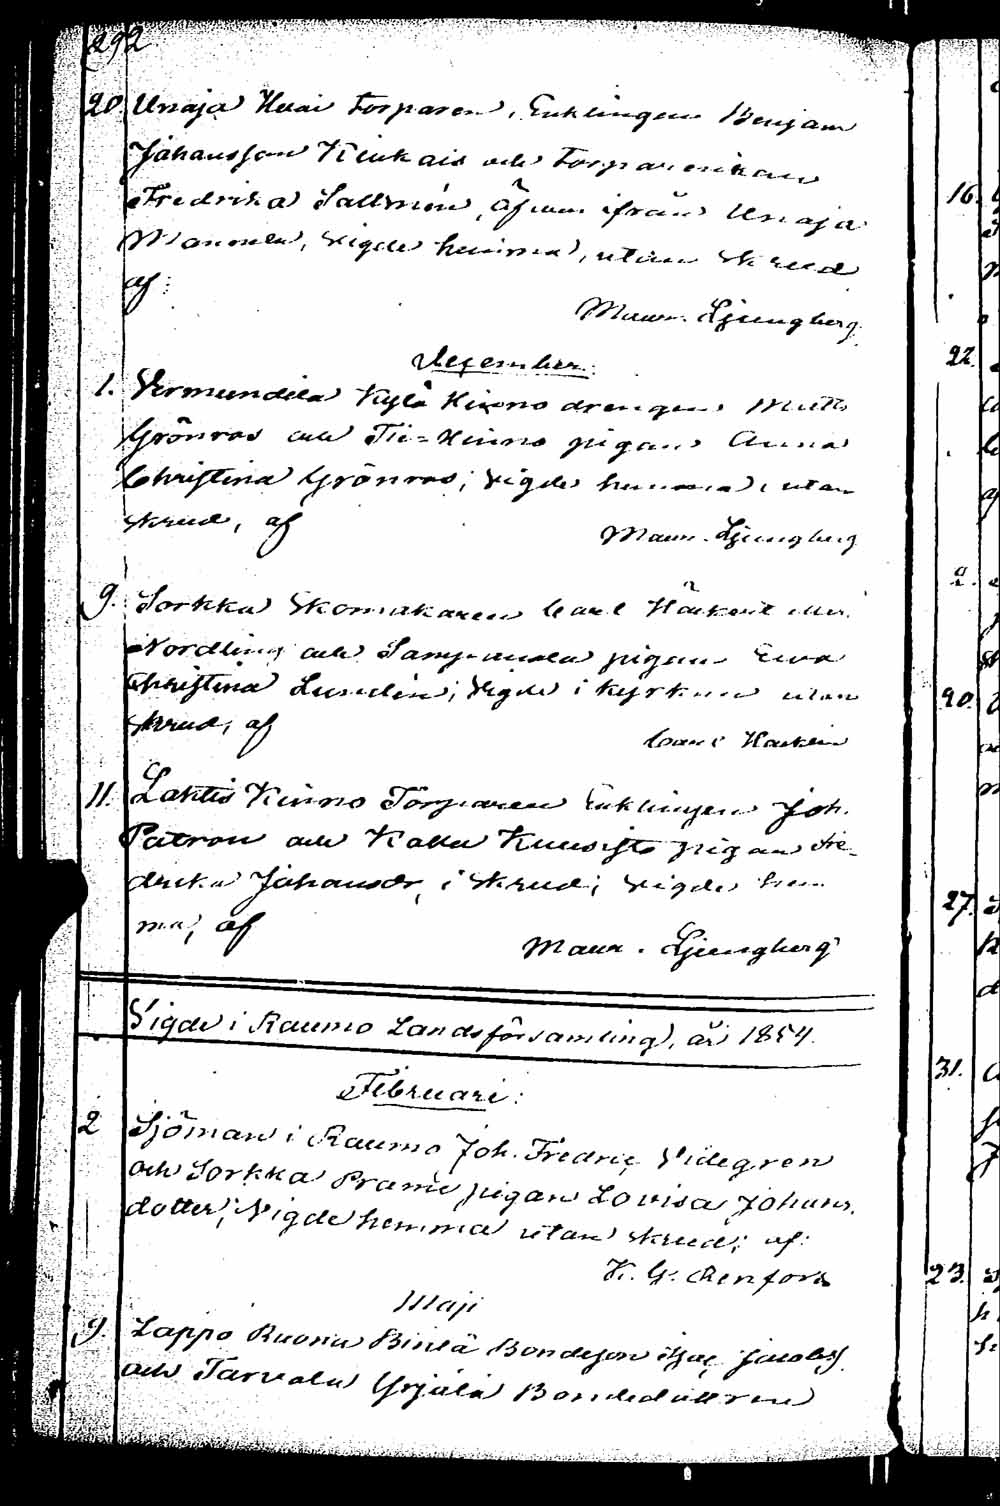 292
20 Unaja Huai Torparen, Enklingen Benjam
Johansson Kiukais och Torparenkan
Fredrika Sallmén, äfven ifrån Unaja
Monnela, vigde hemma, utan skrud
af:
Maur. Ljungberg.
December.
1. Vermundila Kylä Kinno drengen Matts
Grönros och Tii=Kinno pigan Anna
Christina Grönros; vigde hemma, utan
skrud, af
Maur. Ljungberg
9. Sorkka Skomakaren Carl
Nordling och Sampanala pigan Eva
Christina Lundén; vigde i kyrkan utan
skrud, af
Carl
11. Lahtis Kinno Torparen Enklingen Joh.
Patron och Kolla Kuusisto pigan Fre-
drika Johansdr, i skrud; vigde hem
ma; af
Maur. Ljungberg
Vigde i Raumo Landsförsamling, år 1854.
Februari:
2 Sjöman i Raumo Joh. Fredric Videgren
och Sorkka Prami pigan Lovisa Johans.
dotter; Vigde hemma utan skrud; af:
K. G. Renfors
Maji
9. Lappo Ruona Bondeson Isac Jacobss.
och Tarvola Yrjälä Bondedottren
16.
22.
2.
20.
27.
31.
23.